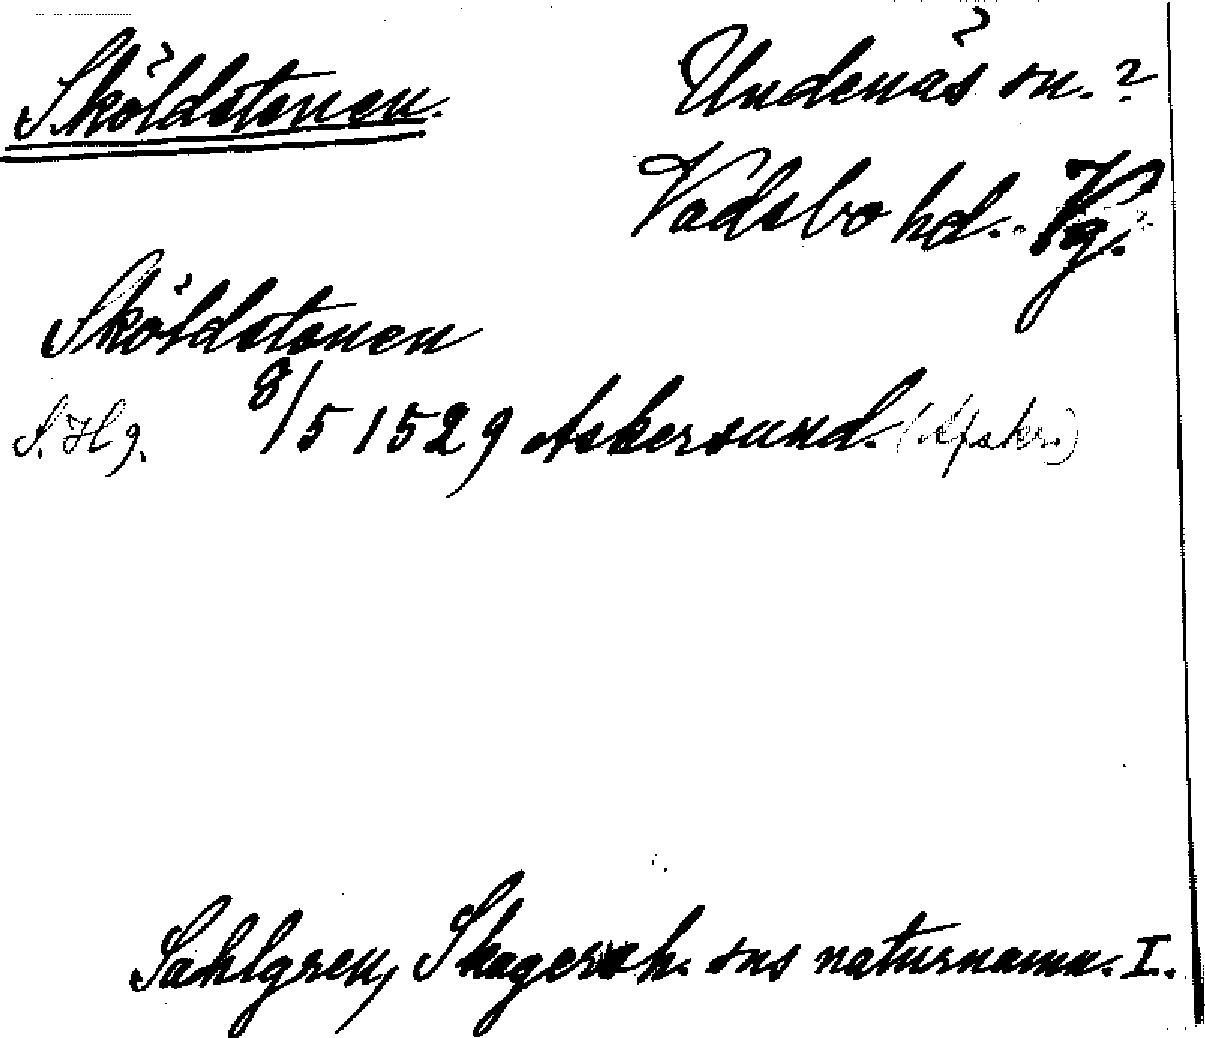 Sköldstenen. Undenäs sn. ?
Vadsbo hd. Vg.
Sköldstenen
S. Hg. 8/5 1529 Askersund. (Afskr.)
Sahlgren, Skagersh. sns naturnamn. I.